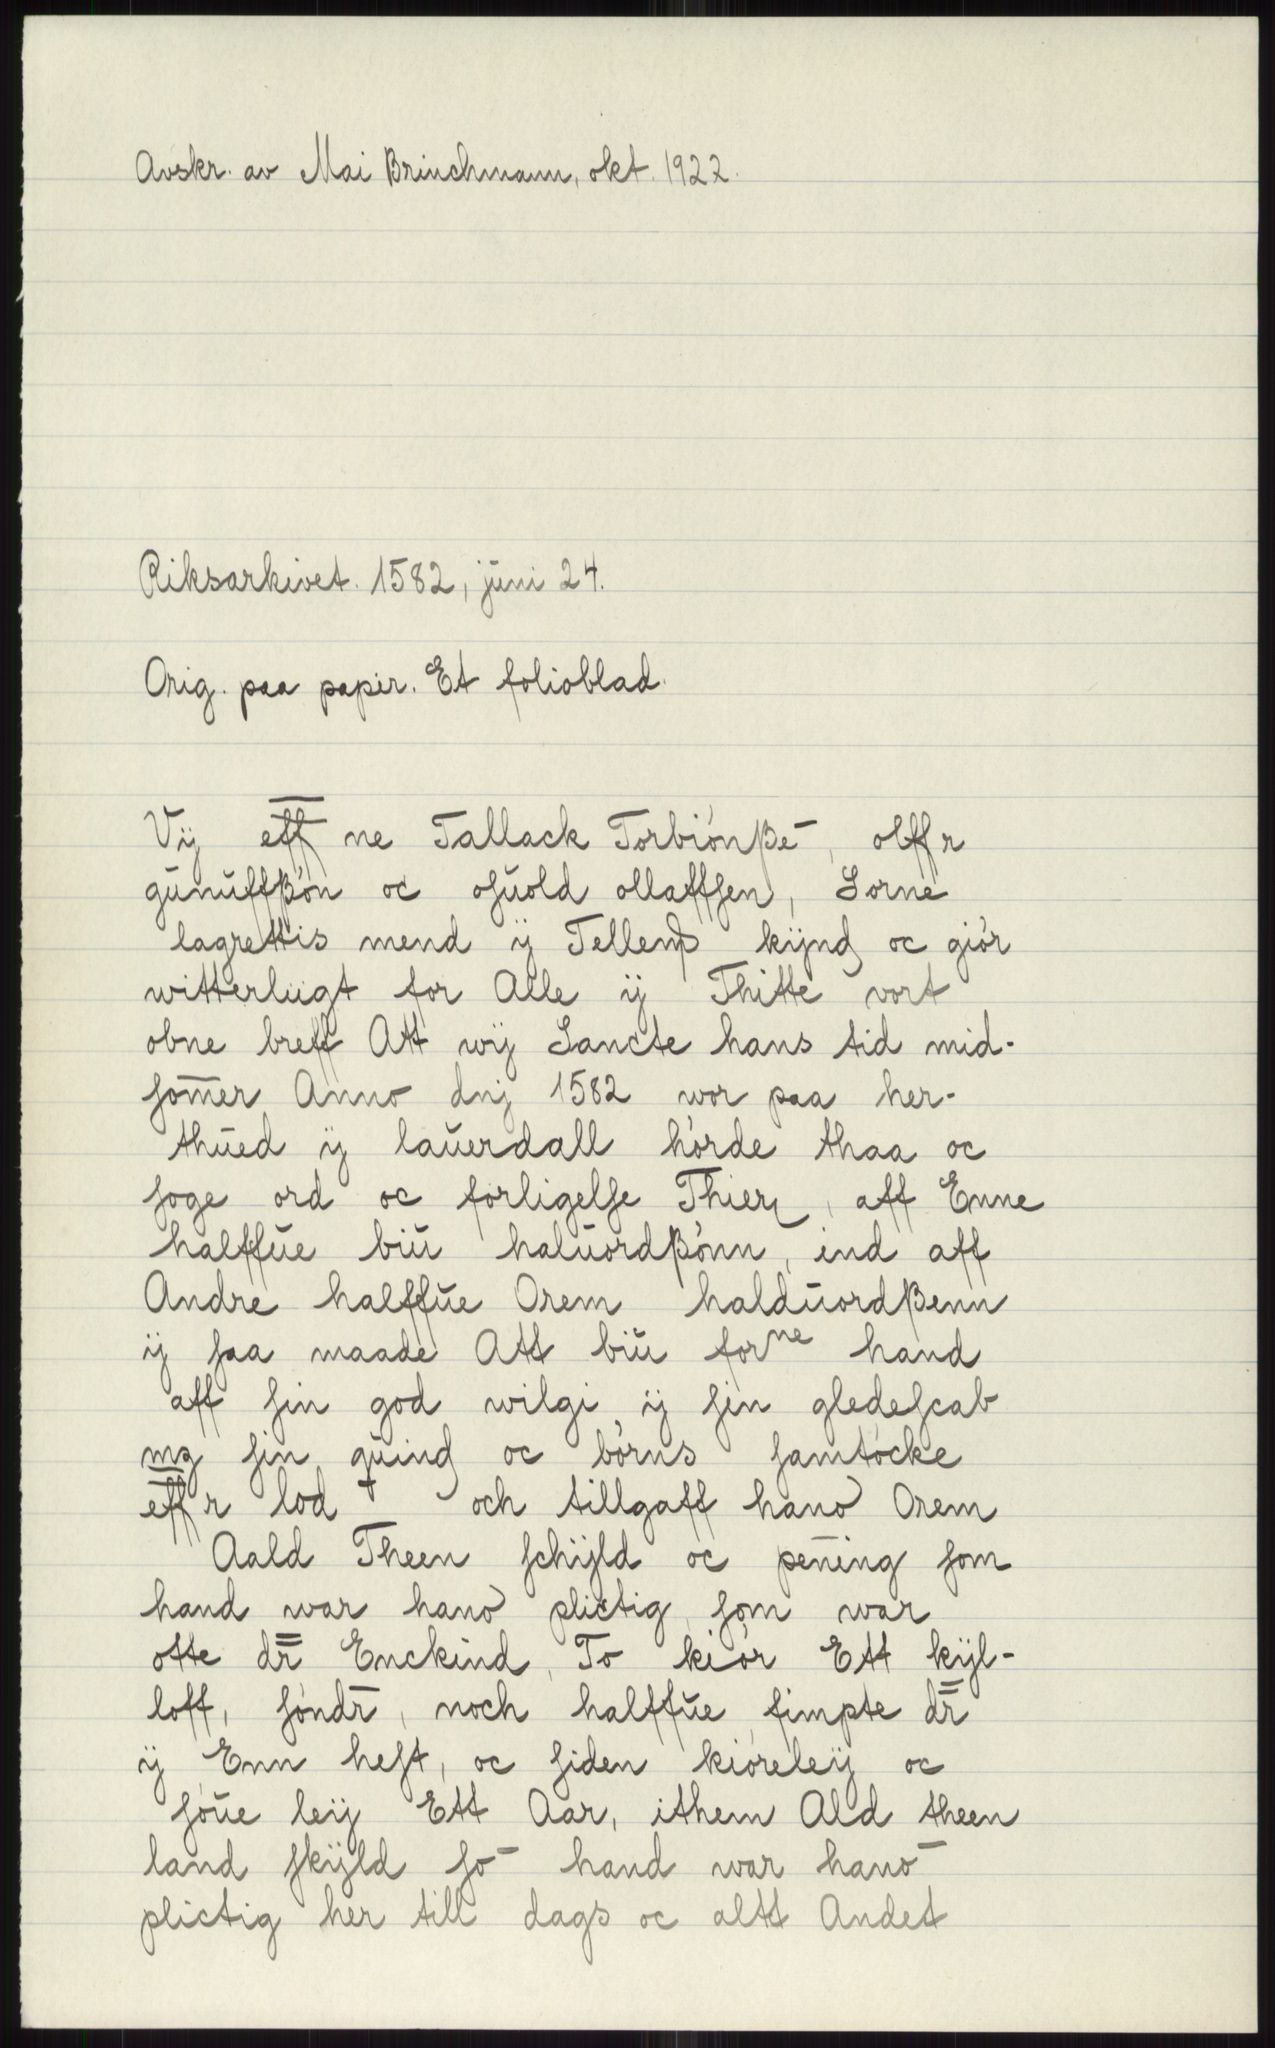 Avskr. av Mai Brinchmann, okt. 1922.
Riksarkivet. 1582, juni 24.
Orig. paa papir. Et folioblad.
Vÿ eff ne Tallack Torbiónße, olffr
gunuffßón oc oſuold ollaffſen, Sorne
lagrettis mend ÿ Tellem kÿnd oc giór
witterligt for Alle ÿ Thitte vort
obne breff Att wÿ Sancte hans tid mid-
ſom̄er Anno dnj 1582 wor paa her-
thued ÿ lauerdall hórde thaa oc
ſoge ord oc forligelſe Thier, aff Enne
halffue biu haluordßónn, ind aff
Andre halffue Orem halduordßenn
ÿ ſaa maade Att biu forne hand
aff ſin god wilgi ÿ ſin gledeſcab
mz ſin quind oc bórns ſamtócke
eff r lod † och tillgaff hano Orem
Aald Theen ſchÿld oc pening ſom
hand war hano plictig ſom war
otte dr̄ Enckind, To kiór Ett kÿl-
loff, ſóndr̄, noch halffue fimpte dr̄
ÿ Enn heſt, oc ſiden kióreleÿ oc
fóue leÿ Ett Aar, ithem Ald theen
land ſkÿld ſo̅ hand war hano
plictig her till dags oc altt Andet